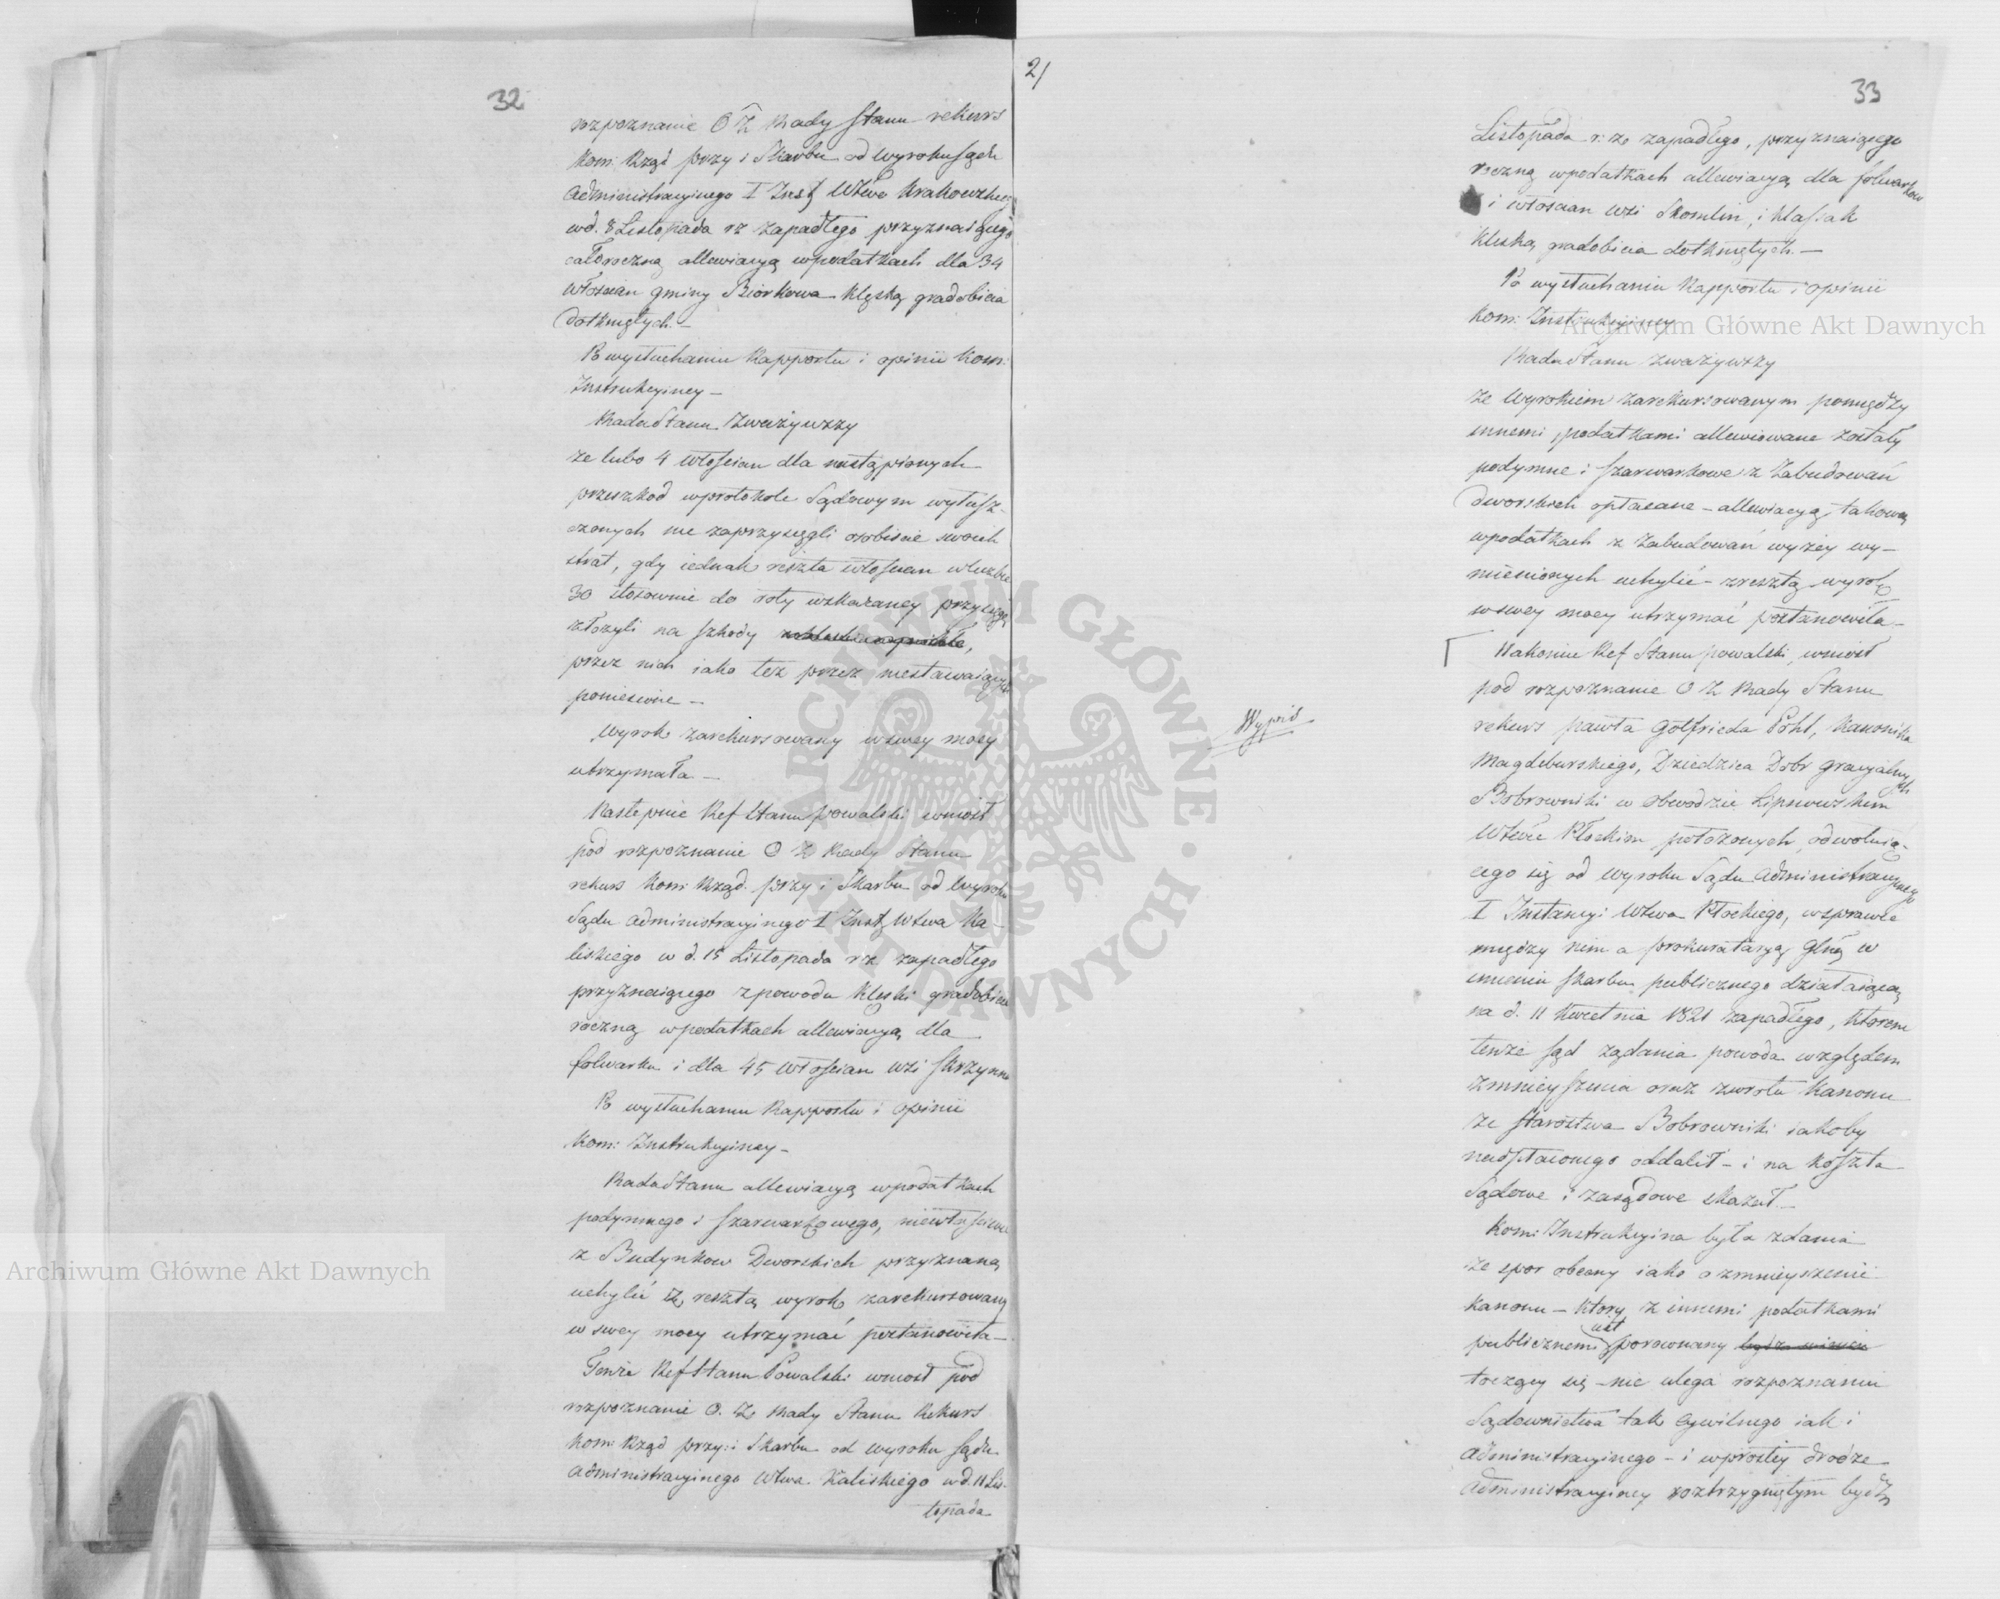 32
rozpoznanie O Z Rady Stanu rekurs
Kom: Rząd przy i Skarbu od wyroku Sądu
Administracyinego I Inst Wtwa Krakowskiego
w d. 8 Listopada rz zapadłego przyznaiącego
całoroczną allewiacyą w podatkach dla 34
włościan gminy Biorkowa klęską gradobicia
dotkniętych. –
Po wysłuchaniu Rapportu i opinii Kom:
Instrukcyiney –
Rada Stanu zważywszy
że lubo 4 włościan dla nastąpionych
przeszkod w protokole Sądowym wyłusz-
czonych nie zaprzysięgli osobiscie swoich
strat, gdy iednak reszta włościan w liczbie
30 stosownie do roty wskazaney przysięgę
złożyli na szkody
przez nich iako też przez niestawaiących
poniesione –
wyrok zarekursowany w swey mocy
utrzymała –
Następnie Ref Stanu Powalski wniosł
pod rozpoznanie O Z Rady Stanu
rekurs Kom: Rząd. przy i Skarbu od wyroku
Sądu Administracyinego I Inst Wtwa Ka-
liskiego w d. 15 Listopada rz zapadłego
przyznaiącego z powodu klęski gradobicia
roczną w podatkach allewiacyą dla
folwarku i dla 45 włościan wsi Skrzynno
Po wysłuchaniu Rapportu i opinii
Kom: Instrukcyiney –
Rada Stanu allewiacyą w podatkach
podymnego i szarwarkowego, niewłaściwie
z Budynkow Dworskich przyznaną
uchylić z resztą wyrok zarekursowany
w swey mocy utrzymać postanowiła –
Tenże Ref Stanu Powalski wniosł pod
rozpoznanie O. Z Rady Stanu Rekurs
Kom: Rząd przy: i Skarbu od wyroku Sądu
Administracyinego Wtwa Kaliskiego w d. 11 Lis-
topada
2/
33
Listopada r: z. zapadłego, przyznaiącego
roczną w podatkach allewiacyą dla folwarkow
i włościan wsi Skomlin, i Klasak
klęską gradobicia dotkniętych. –
Po wysłuchaniu Rapportu i opinii
Kom: Instrukcyiney
Rada Stanu zważywszy
że wyrokiem zarekursowanym pomiędzy
innemi podatkami allewiowane zostały
podymne i szarwarkowe z zabudowań
dworskich opłacane – allewiacyą takową
w podatkach z zabudowań wyżey wy-
mienionych uchylić – zresztą wyrok
w swey mocy utrzymać postanowiła –
Nakoniec Ref Stanu Powalski, wniosł
pod rozpoznanie O Z Rady Stanu
rekurs Pawła Gotfrieda Pohl, Kanonika
Magdeburskiego, Dziedzica Dobr gracyalnych
Bobrowniki w obwodzie Lipnowskim
Wtwie Płockim położonych, odwołuią-
cego się od wyroku Sądu Administracyinego
I Instancyi Wtwa Płockiego, w sprawie
między nim a prokuratoryą Głną w
imieniu Skarbu publicznego działaiącą
na d. 11 Kwietnia 1821 zapadłego, ktorem
tenże Sąd żądania powoda względem
zmnieyszenia oraz zwrotu Kanonu
ze Starostwa Bobrowniki iakoby
nadpłaconego oddalił – i na koszta
Sądowe i zasądowe skazał. –
Kom: Instrukcyina była zdania
że spor obecny iako o zmnieyszenie
Kanonu – ktory z innemi podatkami
publicznemi iest porownany
toczący się – nie ulega rozpoznaniu
Sądownictwa tak Cywilnego iak i
Administracyinego – i w prostey drodze
Administracyiney rozstrzygniętym bydź
Wypis
ARCHIWUM GŁÓWNE · AKT DAWNYCH ·
Archiwum Główne Akt Dawnych
Archiwum Główne Akt Dawnych